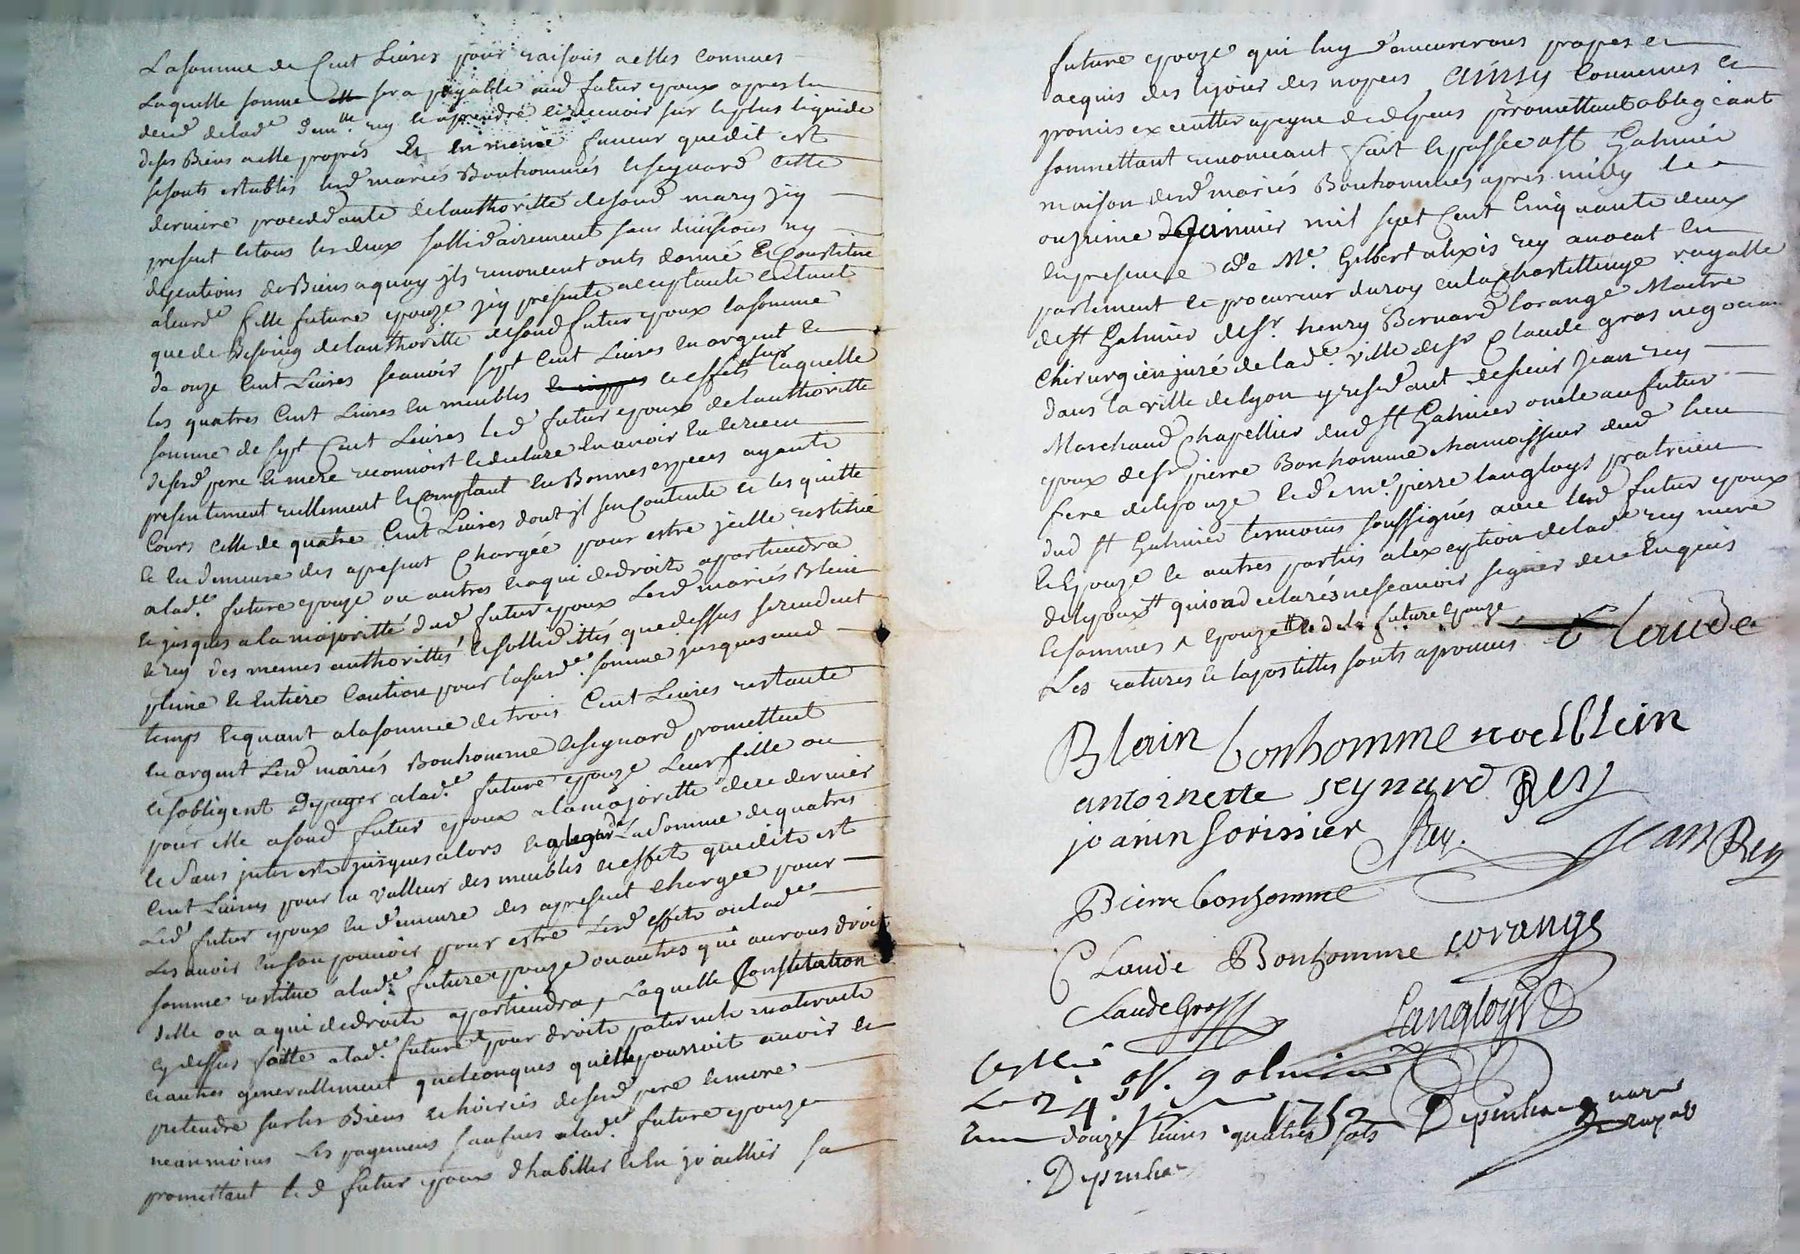 La somme de Cent Livres pour raisons a elles connues
Laquelle somme sera payable aud futur epoux apres le
deced de lad.e dem.lle rey a prendre et recevoir sur le plus liquide
de ses Biens a elle propres Et en meme faveur que dit est
se sonts establis lesd mariés Bonhommes et seynard cette
derniere procedante de l'authoritté de sond mary jcy
present et tous les deux sollidairement sans divisions ny
de Biens a quoy jls renoncent onts donné Et Constitué
a leurd.e fille future epouze jcy presente acceptante entant
que de Besoing de l'authoritté de sond futur epoux la somme
de onze Cent Livres scavoir sept Cent Livres en argent et
les quatres Cent Livres en meubles et effets sur laquelle
somme de sept Cent Livres led futur epoux de l'authoritté
de sesd pere et mere reconnoist et declare en avoir eu et receu
presentement reellement et Comptant en Bonnes especes ayants
Cours celle de quatre Cent Livres dont jl s'en Contente et les quitte
et en demeure des apresent Chargée pour estre jcelle restitué
a lad.e future epouze ou autres et a qui de droits apartiendra
et jusques a la majoritté dud futur epoux Lesd mariés Blein
et rey des memes authorittés et sollidittés que dessus se rendent
pleine et entiere Caution pour lasusd.e somme jusques aud
temps et quant a la somme de trois Cent Livres restante
en argent Lesd mariés Bonhomme et seynard promettent
et s'obligent de payer a lad.e future epouze Leur fille ou
pour elle a sond futur epoux a la majoritté de ce dernier
et sans jnterests jusques alors et a legard La somme de quatres
Cent Livres pour la valleur des meubles et effets que dits est
Led futur epoux en demeure des apresent Chargée pour
Les avoir en son pouvoir pour estre Lesd effets ou lad.e
somme restitué a lad.e future epouze ou autres qui aurons droit
delle ou a qui de droits apartiendra, Laquelle Constitution
cy dessus faitte a lad.e future pour droits paternels maternels
et autres generallement quelconques quelle pourroit avoir et
pretendre sur les Biens et hoiries de sesd pere et mere
neanmoins Les payemens sauf a lad.e future epouze
promettant led futur epoux d'habiller et en joaillier sa
future epouze qui luy demeurerons propres et
acquis des le jour des nopces Ainsy Convenu et
promis executter a peyne de depens promettant obligeant
soumettant renonceant fait et passé a St Galmier
maison desd mariés Bonhommes apres midy le
onzieme Janvier mil sept Cent Cinquante deux
en presence de Me. Gilbert alexis rey avocat en
parlement et procureur du roy en la Chastellenye royalle
de St Galmier de Sr. henry Bernard lorange Maitre
Chirurgien juré de lad.e ville de Sr Claude gros negociant
dans la ville de lyon y residant de sieur Jean rey
Marchand Chapellier dud St Galmier oncle au futur
epoux de Sr pierre Bonhomme chamoisseur dud lieu
frere de l'epouze et de me. pierre langloys praticien
dud St Galmier temoins soussignés avec lesd futur epoux
et epouze et autres partis a l'exeption de lad.e rey mere
de l'epoux qui on declarés ne scavoir signer de ce Enquis
et sommés epouze et de la future epouze
Les ratures et lapostilles sonts aprouvés Claude
Blain bonhomme noel blein
antoinette seynard Rey
joanin sorissier Rey. jean Rey
Pierre bonhomme
Claude Bonhomme Lorange
Claude Gros Langloys
St. galmier
Le 24e 1752
douze livres quatres sols
royal